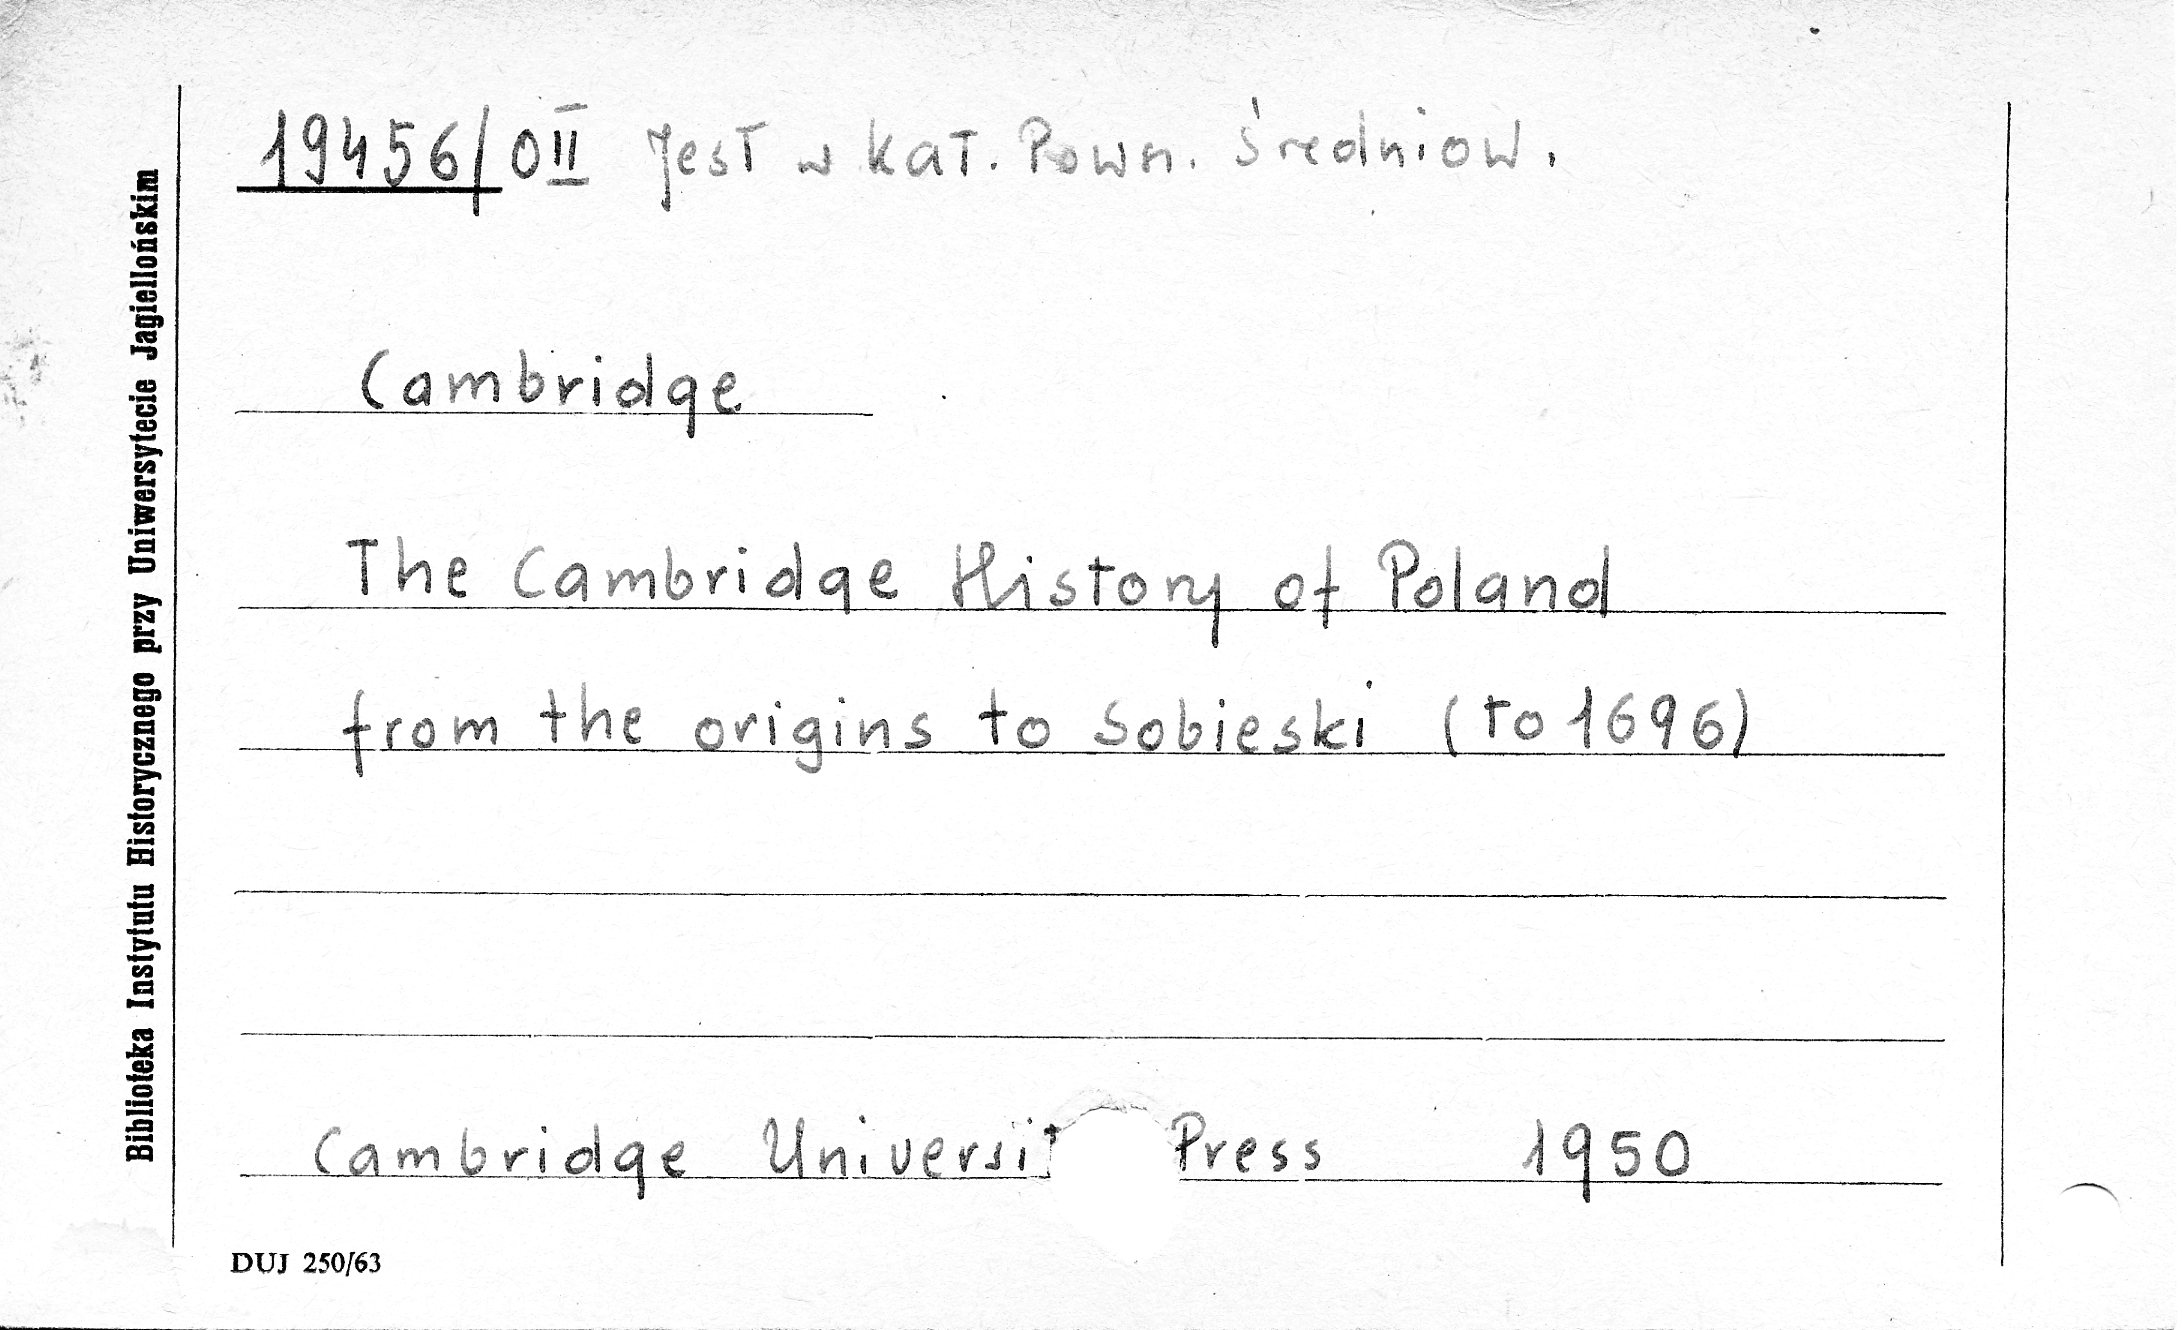 19456/0II Jest w kat. Pown. średniow.
Biblioteka Instytutu Historycznego przy Uniwersytecie Jagiellońskim
Cambridge
The Cambridge History of Poland
from the origins to Sobieski (to 1696)
Cambridge Universit Press 1950
DUJ 250/63